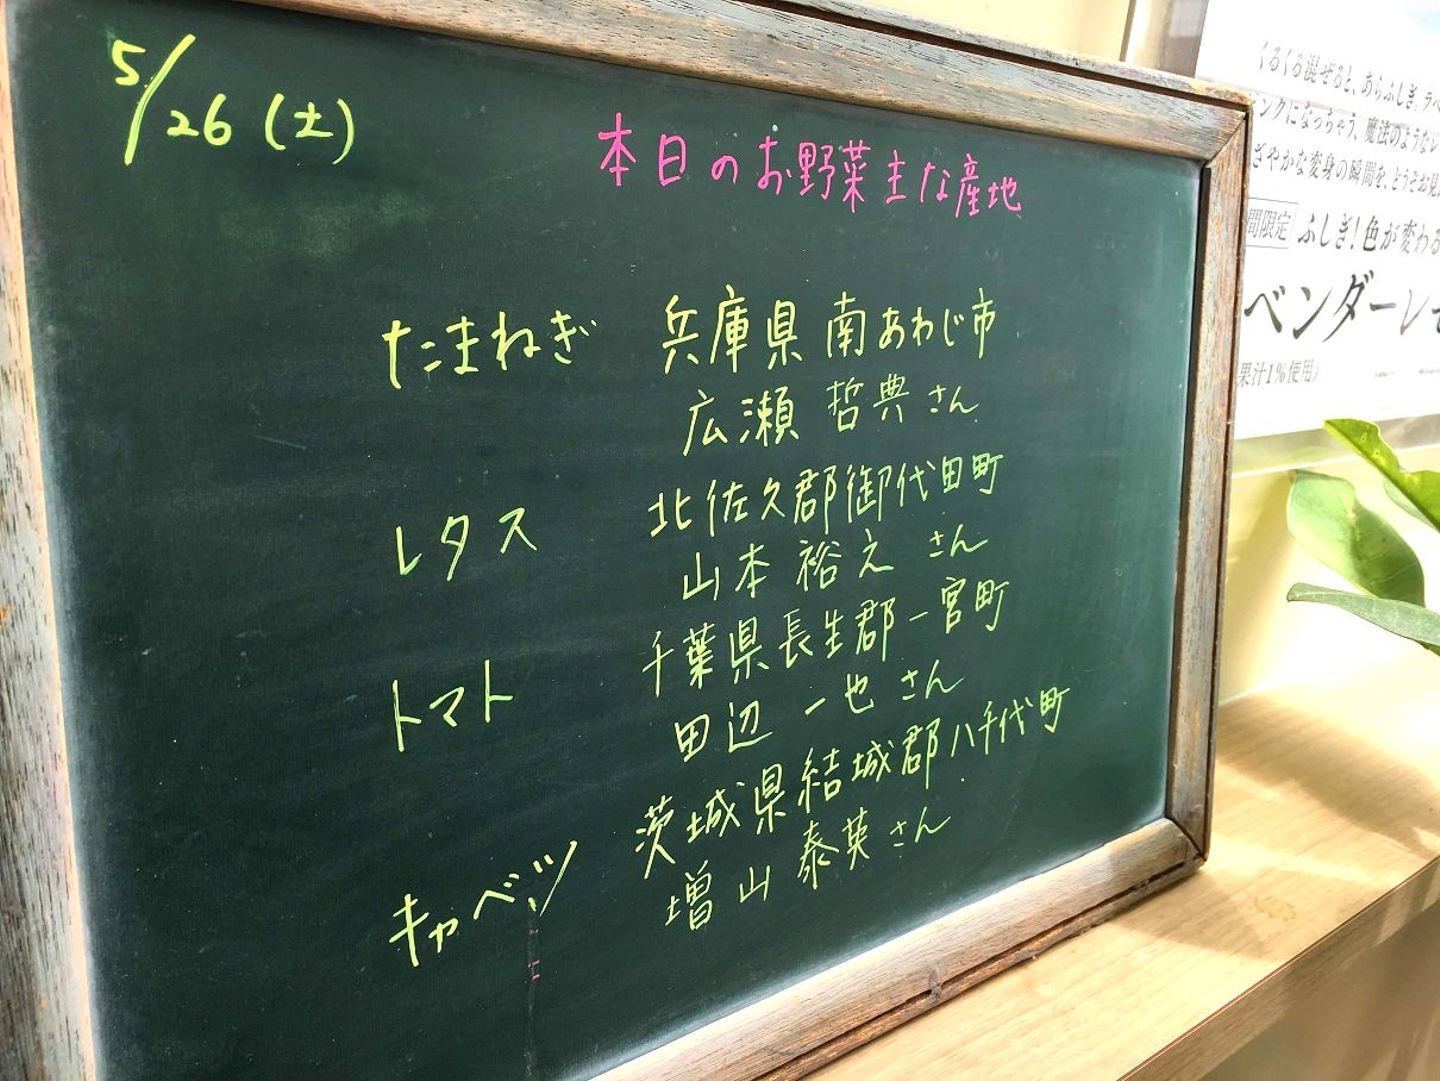 5/26(土)
本日のお野菜主な産地
たまねぎ 兵庫県 南あわじ市
広瀬 哲典 さん
レタス 北佐久郡御代田町
山本 裕之 さん
トマト 千葉県長生郡一宮町
田辺 一也 さん
キャベツ 茨城県結城郡八千代町
増山 泰英 さん
くるくる混ぜると、あらふしぎ。ラベ
ンクになっちゃう、魔法のようなレ
ざやかな変身の瞬間を、どうぞお見
間限定 ふしぎ!色が変わる
ベンダーレモ
果汁1%使用)